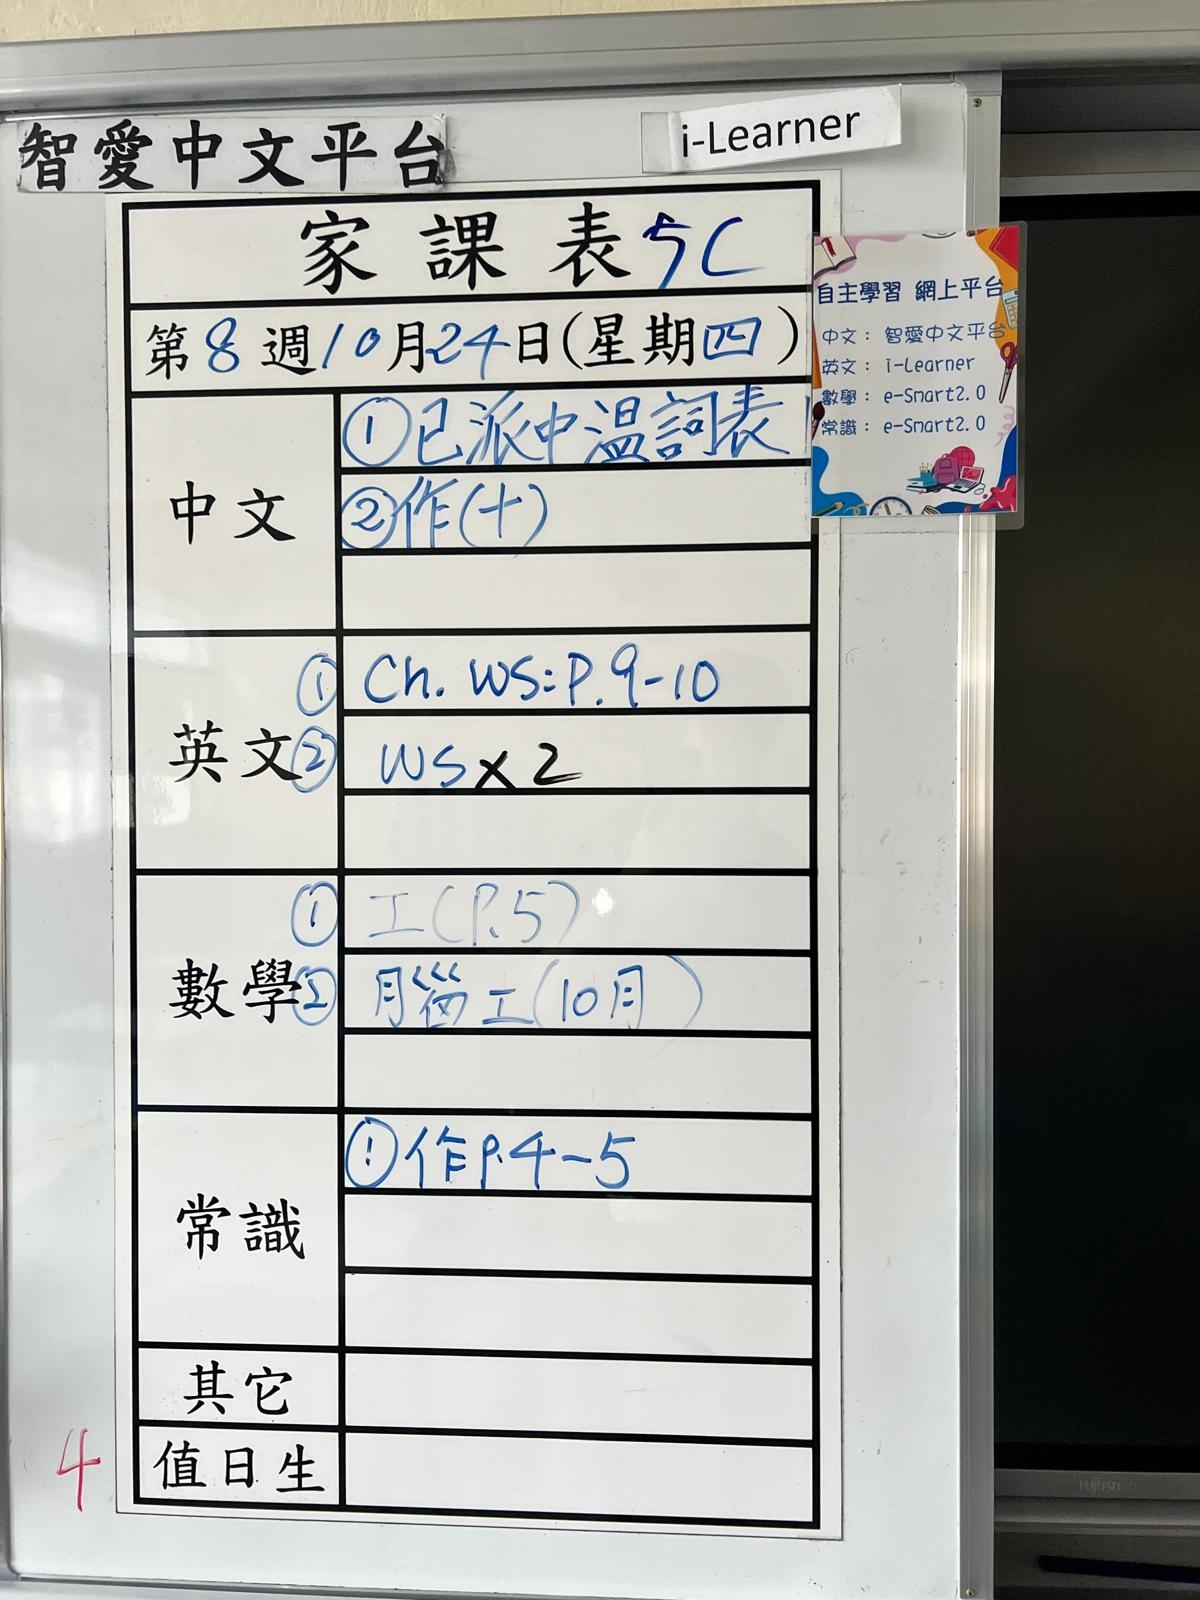 智愛中文平台
i-Learner
家課表 5C
第8週10月24日(星期四)
自主學習 網上平台
中文： 智愛中文平台
英文： i-Learner
數學： e-Smart2.0
常識： e-Smart2.0
中文
①已派中溫詞表
②作(十)
英文
① Ch. WS: P.9-10
② WS x 2
數學
① 工(P.5)
② 月 工(10月)
常識
①作P.4-5
其它
值日生
4